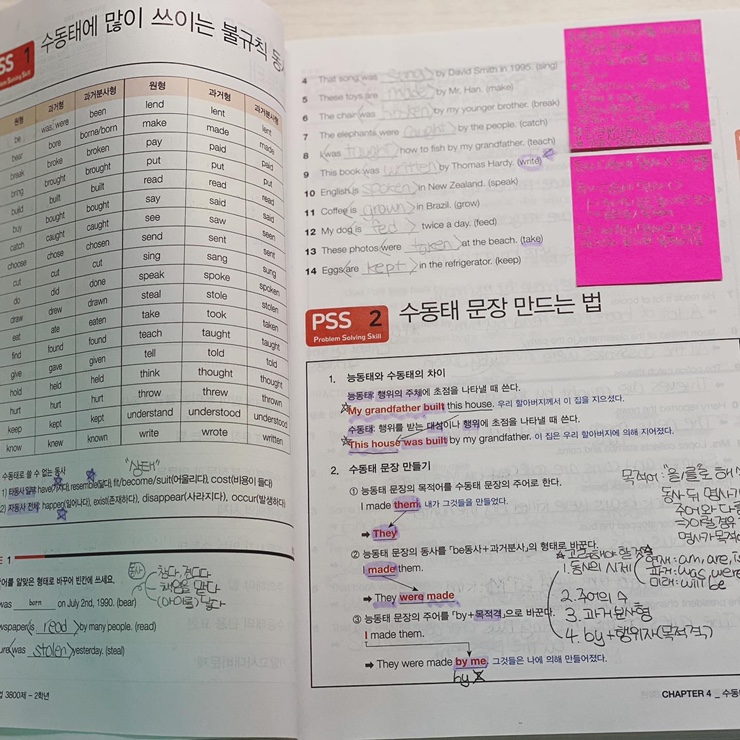 PSS 1 수동태에 많이 쓰이는 불규칙 동사
Problem Solving Skill
원형 과거형 과거분사형 원형 과거형 과거분사형
be was/were been lend lent lent
bear bore borne/born make made made
break broke broken pay paid paid
bring brought brought put put put
build built built read read read
buy bought bought say said said
catch caught caught see saw seen
choose chose chosen send sent sent
cut cut cut sing sang sung
do did done speak spoke spoken
draw drew drawn steal stole stolen
eat ate eaten take took taken
find found found teach taught taught
give gave given tell told told
hold held held think thought thought
hurt hurt hurt throw threw thrown
keep kept kept understand understood understood
know knew known write wrote written
수동태로 쓸 수 없는 동사 "상태"
1) 타동사 일부: have(가지다), resemble(닮다), fit/become/suit(어울리다), cost(비용이 들다)
2) 자동사 전체: happen(일어나다), exist(존재하다), disappear(사라지다), occur(발생하다)
1
동사를 알맞은 형태로 바꾸어 빈칸에 쓰세요.
동사
참다, 견디다
책임을 맡다
(아이를) 낳다
was born on July 2nd, 1990. (bear)
newspaper is read by many people. (read)
was stolen yesterday. (steal)
3800제 – 2학년
4 That song was sung by David Smith in 1995. (sing)
5 These toys are made by Mr. Han. (make)
6 The chair was broken by my younger brother. (break)
7 The elephants were caught by the people. (catch)
8 I was taught how to fish by my grandfather. (teach)
9 This book was written by Thomas Hardy. (write)
10 English is spoken in New Zealand. (speak)
11 Coffee is grown in Brazil. (grow)
12 My dog is fed twice a day. (feed)
13 These photos were taken at the beach. (take)
14 Eggs are kept in the refrigerator. (keep)
PSS 2 수동태 문장 만드는 법
Problem Solving Skill
1. 능동태와 수동태의 차이
능동태: 행위의 주체에 초점을 나타낼 때 쓴다.
My grandfather built this house. 우리 할아버지께서 이 집을 지으셨다.
수동태: 행위를 받는 대상이나 행위에 초점을 나타낼 때 쓴다.
This house was built by my grandfather. 이 집은 우리 할아버지에 의해 지어졌다.
2. 수동태 문장 만들기
① 능동태 문장의 목적어를 수동태 문장의 주어로 한다.
I made them. 내가 그것들을 만들었다.
➡ They
② 능동태 문장의 동사를 「be동사+과거분사」의 형태로 바꾼다.
I made them.
➡ They were made
③ 능동태 문장의 주어를 「by+목적격」으로 바꾼다.
I made them.
➡ They were made by me. 그것들은 나에 의해 만들어졌다.
by
목적어: "을/를"로 해석
동사 뒤 명사가
주어와 다를
명사가 목적어
고려해야 할 것
1. 동사의 시제
현재: am, are, is
과거: was were
미래: will be
2. 주어의 수
3. 과거분사형
4. by+행위자(목적격)
CHAPTER 4 _ 수동태